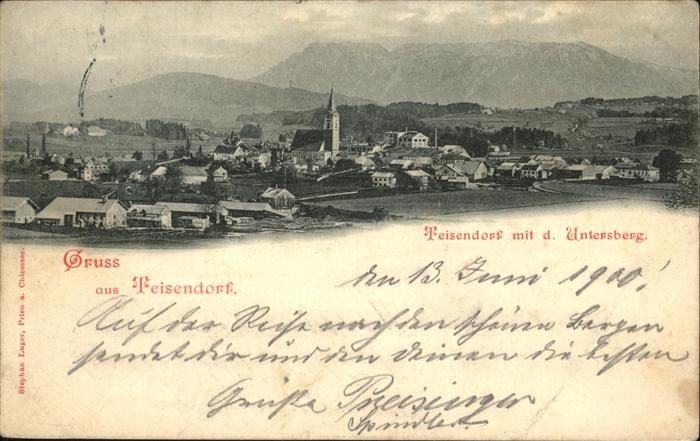 Teisendorf mit d. Untersberg.
Gruss
aus Teisendorf.
Stephan Luger, Prien a. Chiemsee.
den 13. Juni 1900!
Auf der Reise nach den schönen Bergen
sendet dir und den deinen die besten
Grüße Preisinger
Spindler